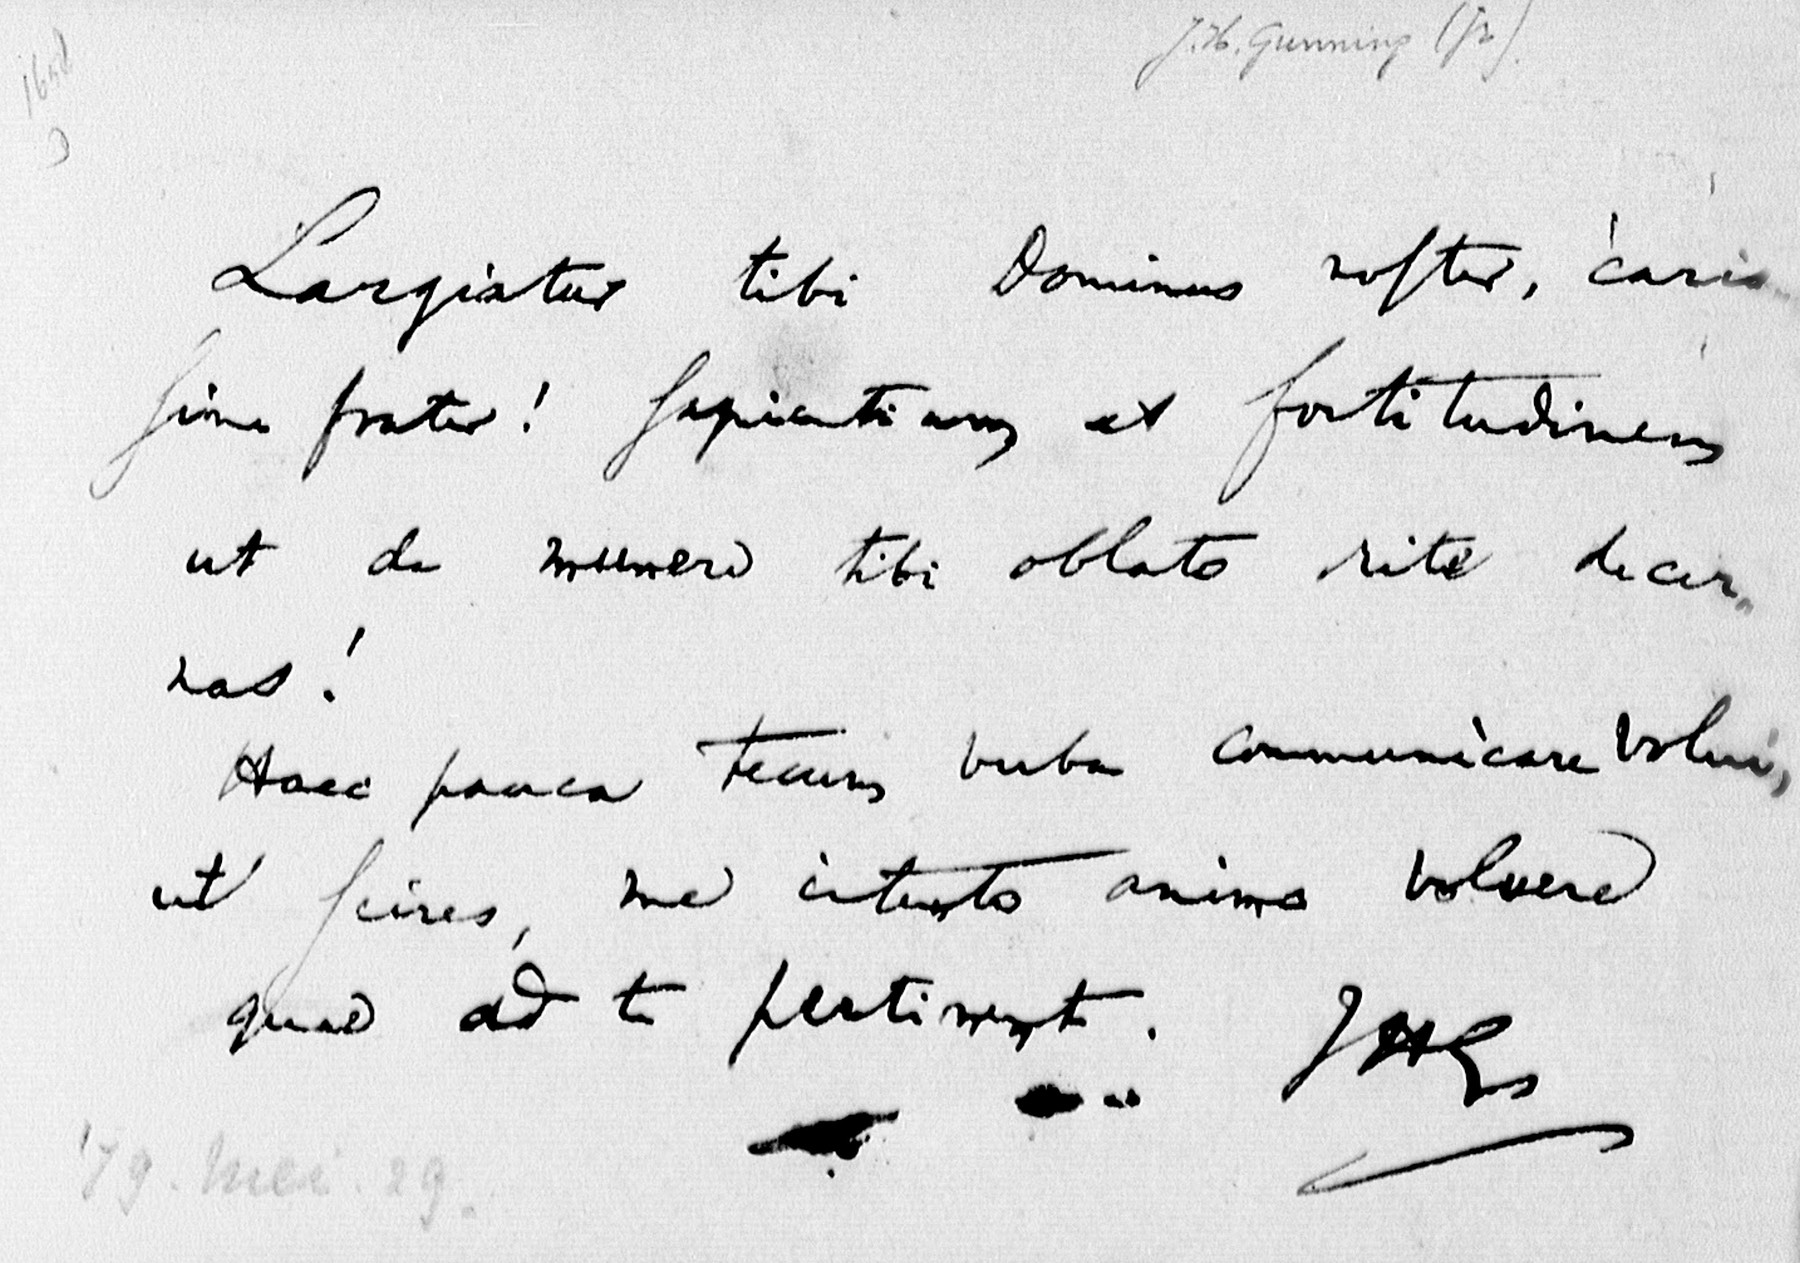 J.H. Gunning (Jr).
Largiatur tibi Dominus noster, caris-
sime frater! Sapientiam et fortitudinem
ut de munere tibi oblato rite decer-
nas!
Haec pauca tecum verba communicare volui,
ut scires, me intento animo volvere
quae ad te pertinent. JHG
'79. Mei. 29.